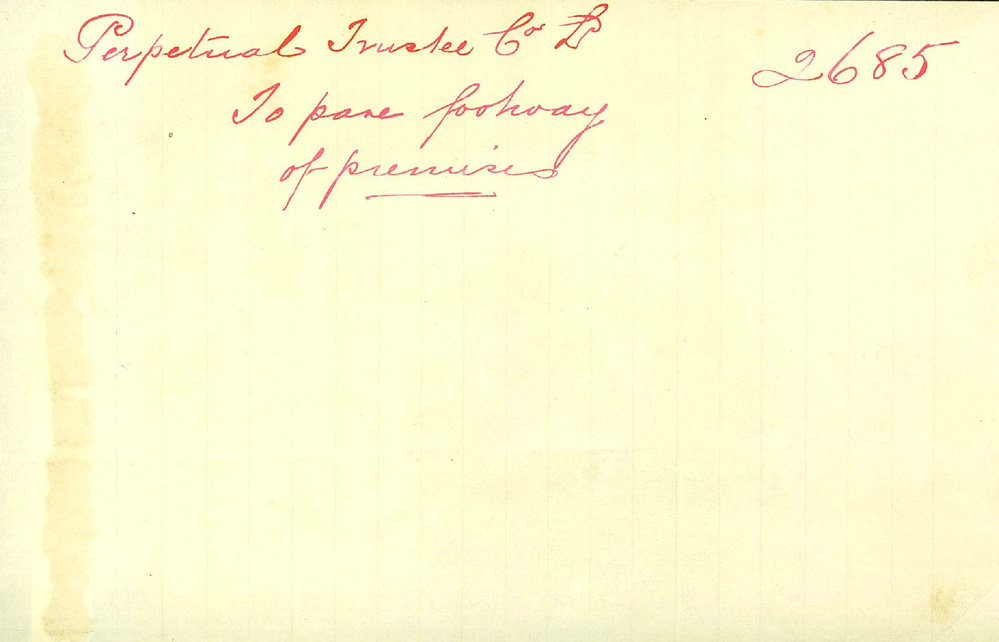 Perpetual Trustee Co Ld
2685
To pave footway
of premises